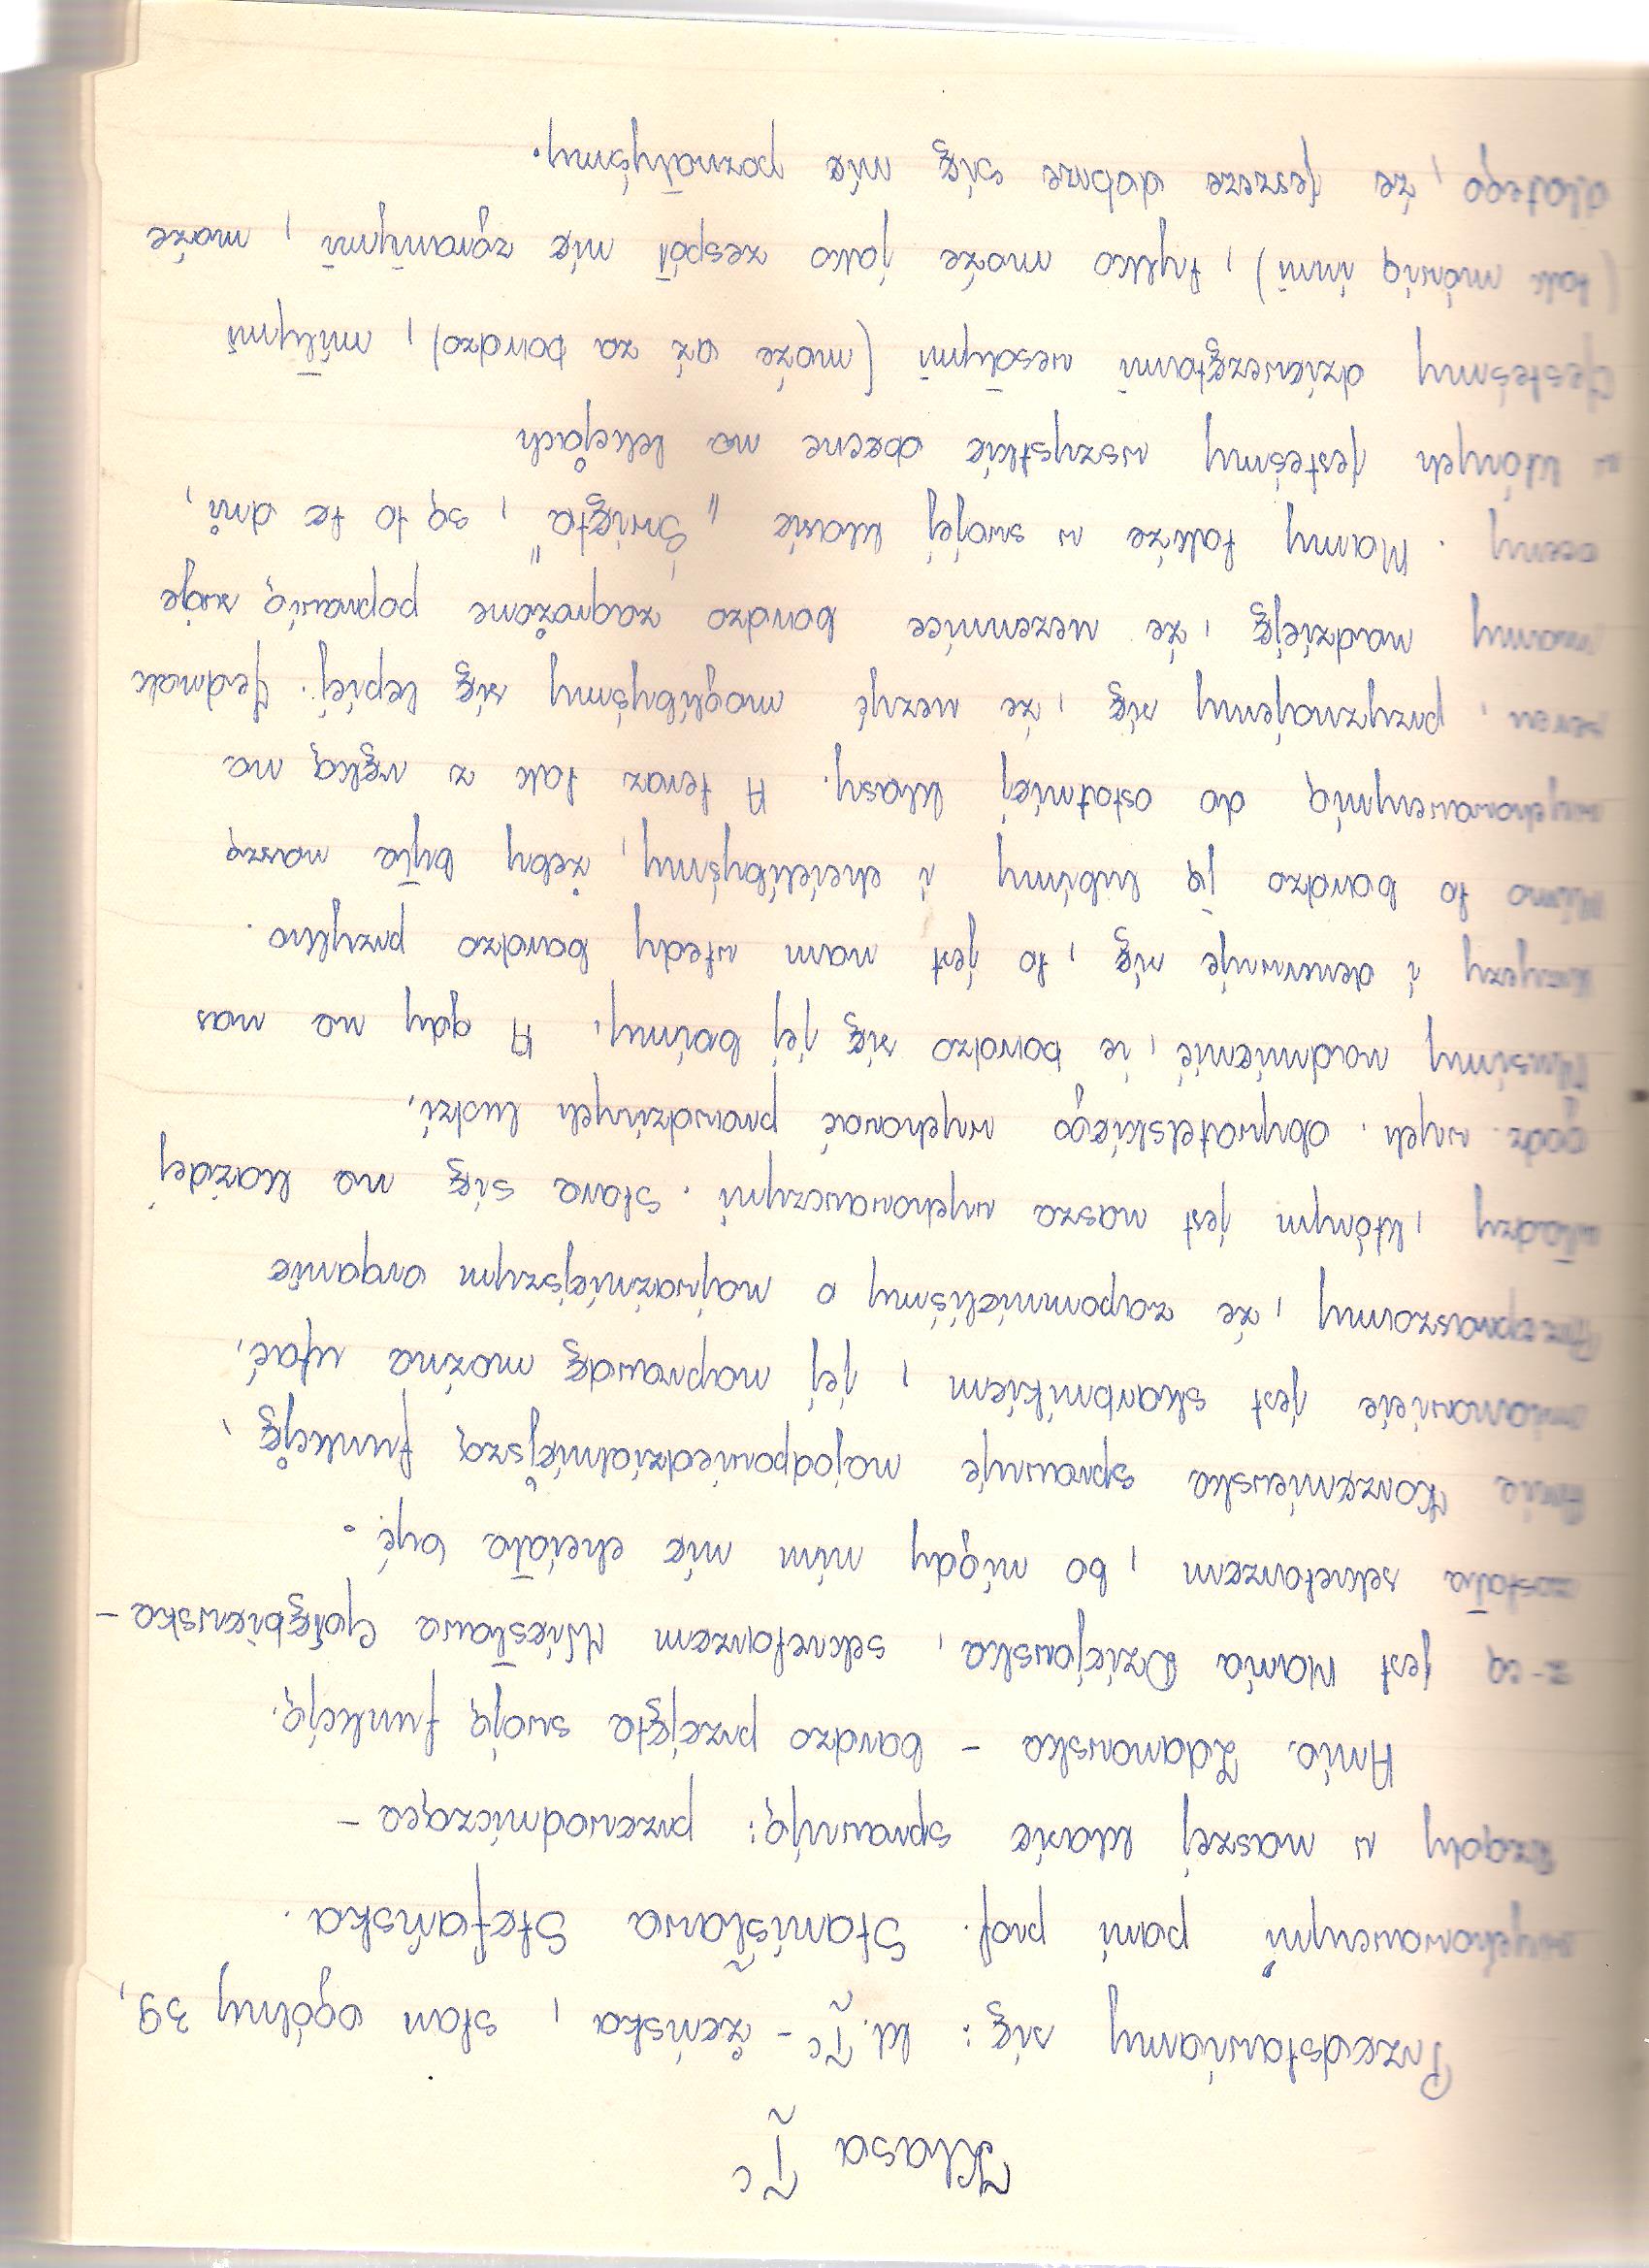 Klasa Ic
Przedstawiamy się: kl. Ic - żeńska, stan ogólny 39,
wychowawczyni pani prof. Stanisława Stefańska.
Rządy w naszej klasie sprawują: przewodnicząca -
Ania Zdanowska - bardzo przejęta swoją funkcją,
z-cą jest Maria Dziejowska, sekretarzem Wiesława Gołębiewska -
została sekretarzem, bo nigdy nim nie chciała być.
Ania Korzeniewska sprawuje najodpowiedzialniejszą funkcję,
mianowicie jest skarbnikiem, jej naprawdę można ufać.
Przepraszamy, że zapomnieliśmy o najważniejszym organie
władzy, którym jest nasza wychowawczyni. Stara się na każdej
godz. wych. obywatelskiego wychować prawdziwych ludzi.
Musimy nadmienić, że bardzo się jej boimy. A gdy na nas
krzyczy i denerwuje się, to jest nam wtedy bardzo przykro.
Mimo to bardzo ją lubimy i chciałybyśmy, żeby była naszą
wychowawczynią do ostatniej klasy. A teraz tak z ręką na
sercu, przyznajemy się, że uczyć mogłybyśmy się lepiej. Jednak
mamy nadzieję, że uczennice bardzo zagrożone poprawią swoje
oceny. Mamy także w swojej klasie "Święta", są to te dni,
w których jesteśmy wszystkie obecne na lekcjach
Jesteśmy dziewczętami wesołymi (może aż za bardzo), miłymi
(tak mówią inni), tylko może jako zespół nie zgranymi, może
dlatego, że jeszcze dobrze się nie poznałyśmy.